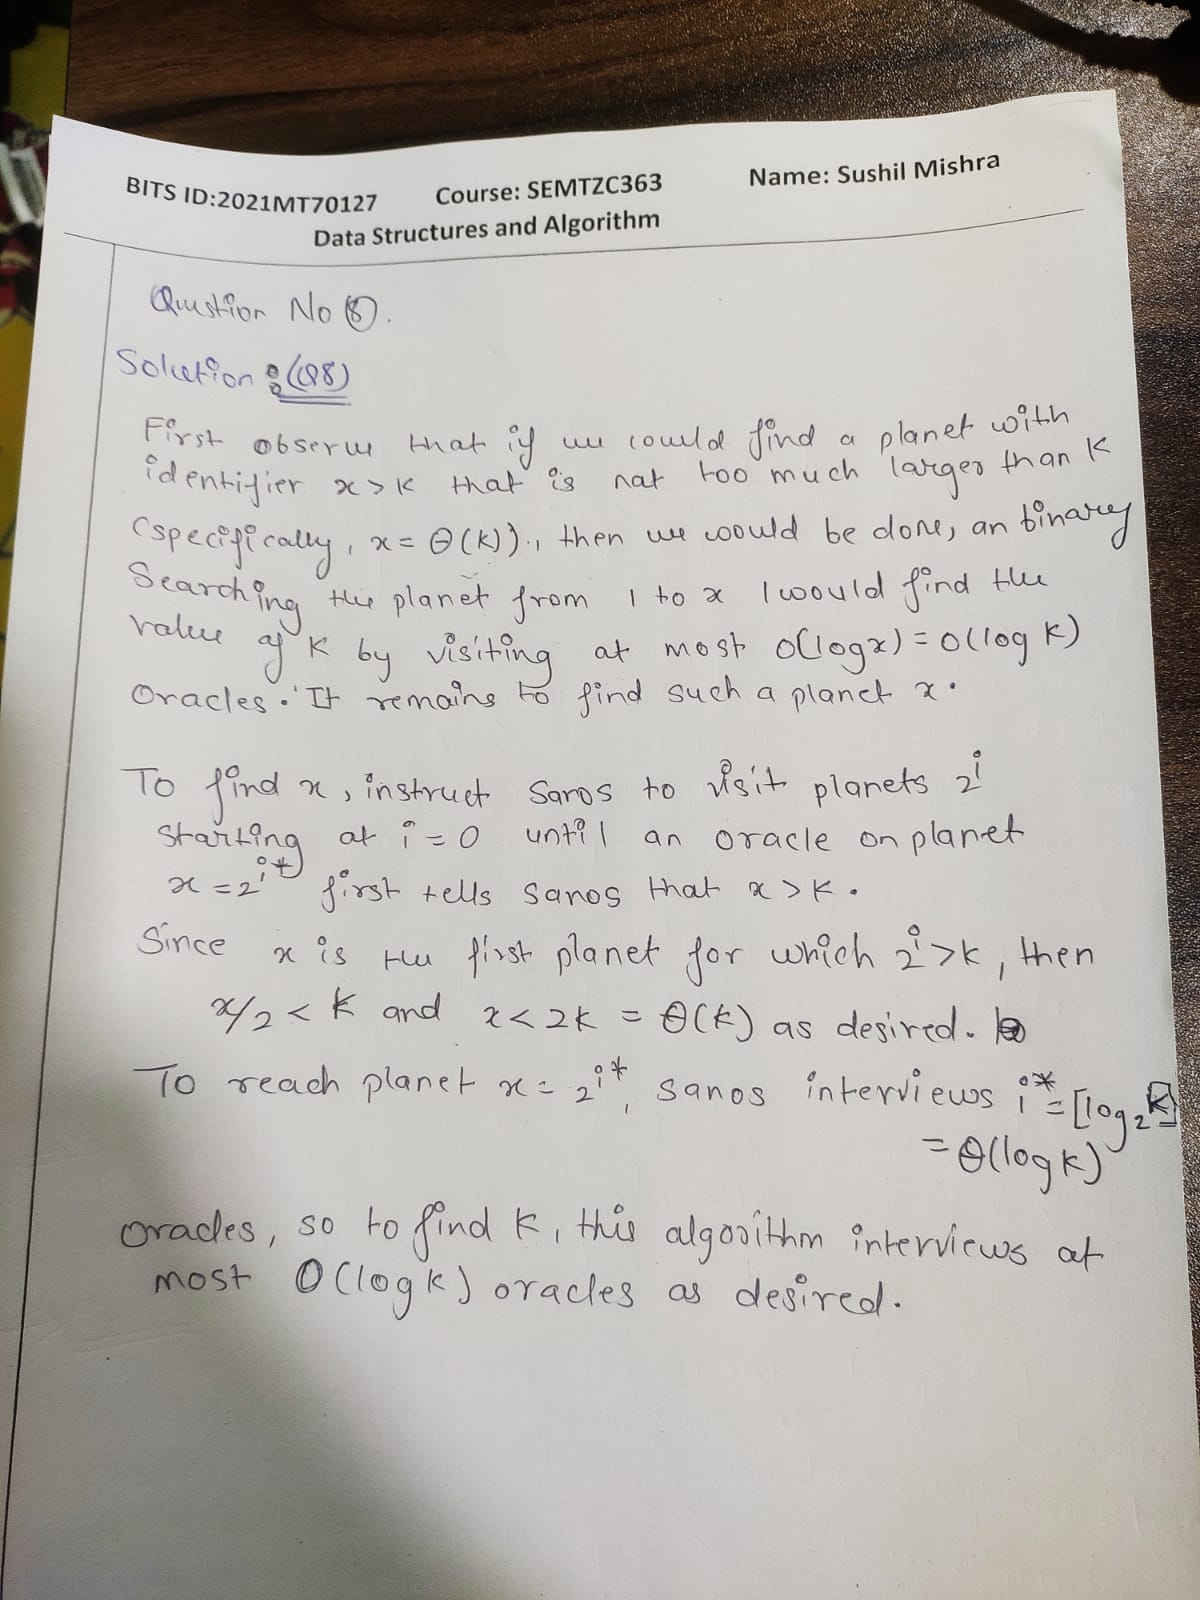 BITS ID:2021MT70127 Course: SEMTZC363 Name: Sushil Mishra
Data Structures and Algorithm
Question No 8.
Solution : (Q8)
First observe that if we could find a planet with
identifier x > k that is nat too much larger than K
(specifically, x = Θ(K))., then we would be done, an binary
Searching the planet from 1 to x would find the
value of K by visiting at most O(log x) = O(log K)
Oracles. It remains to find such a planet x.
To find x, instruct Saros to visit planets 2^i
Starting at i = 0 until an oracle on planet
x = 2^i* first tells Sanos that x > k.
Since x is the first planet for which 2^i > k, then
x/2 < k and x < 2k = Θ(k) as desired.
To reach planet x = 2^i*, sanos interviews i* = [log₂ k]
= Θ(log k)
oracles, so to find k, this algorithm interviews at
most O(log k) oracles as desired.